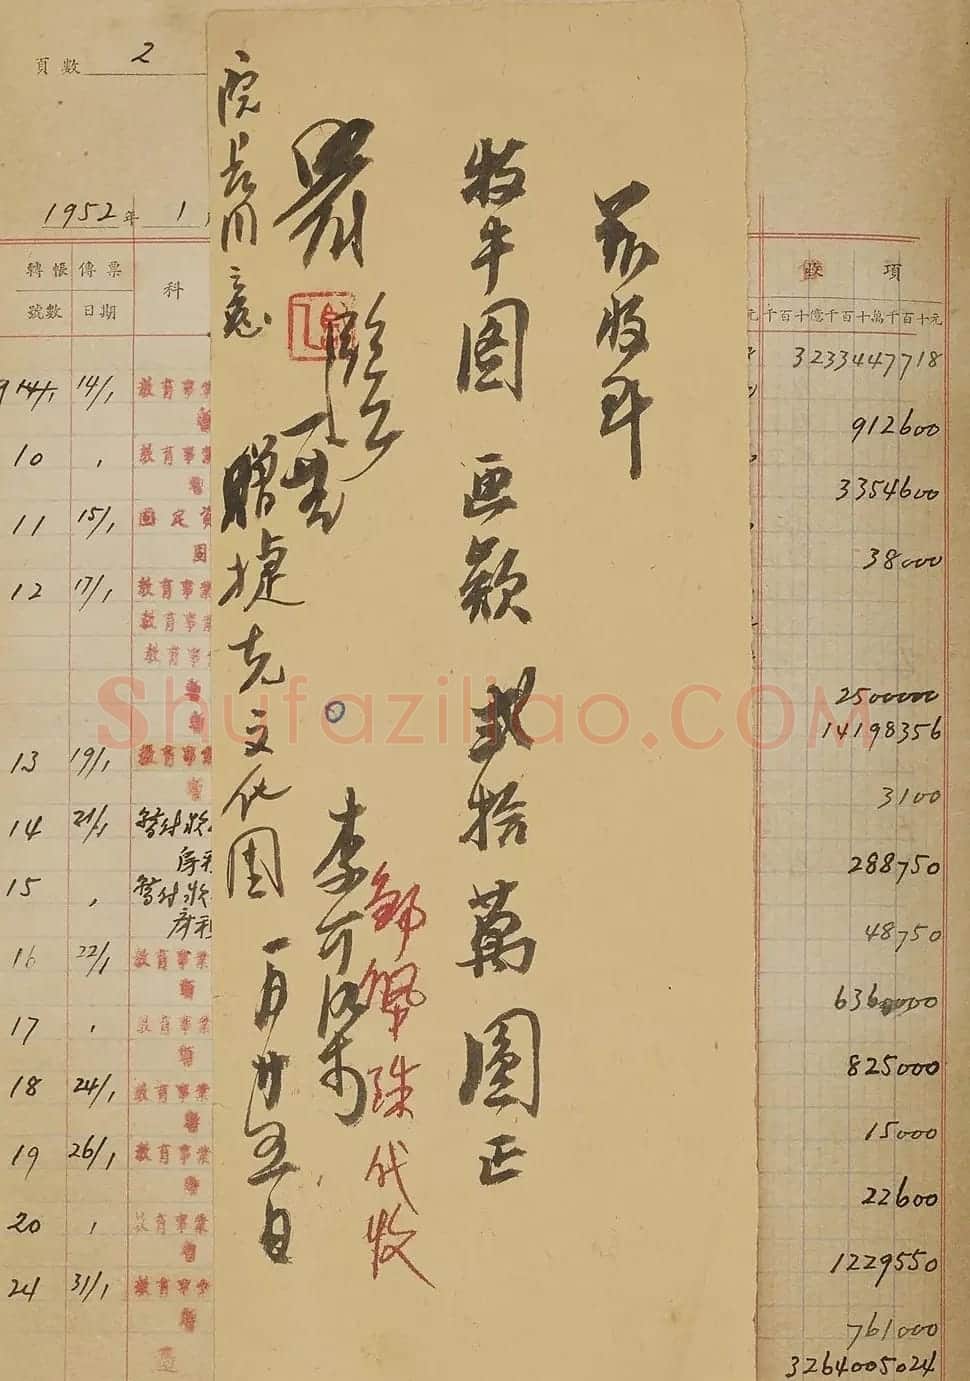 茲收到
牧牛图 画欵 弍拾萬圓正
李可染
邹佩珠代收
赠捷克文化团
一月廿五日
院长用意
頁數 2
1952年 1
轉帳傳票
號數 日期
科
收 項
千百十億千百十萬千百十元
3233447718
14/1 教育事業
912600
10 教育事業
3354600
11 15/1 固定資
38000
12 17/1 教育事業
教育事業
教育事
2500000
14198356
13 19/1 教育事業
3100
14 21/1 暂付
288750
15 暂付
48750
16 22/1 教育事業
6360000
17 教育事業
825000
18 24/1 教育事業
15000
19 26/1 教育事業
22600
20 教育事業
1229550
24 31/1 教育事
761000
3264005024
Shufaziliao.COM